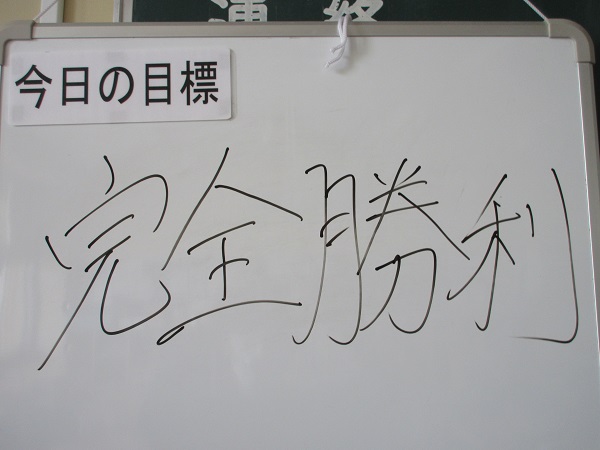 今日の目標
完全勝利